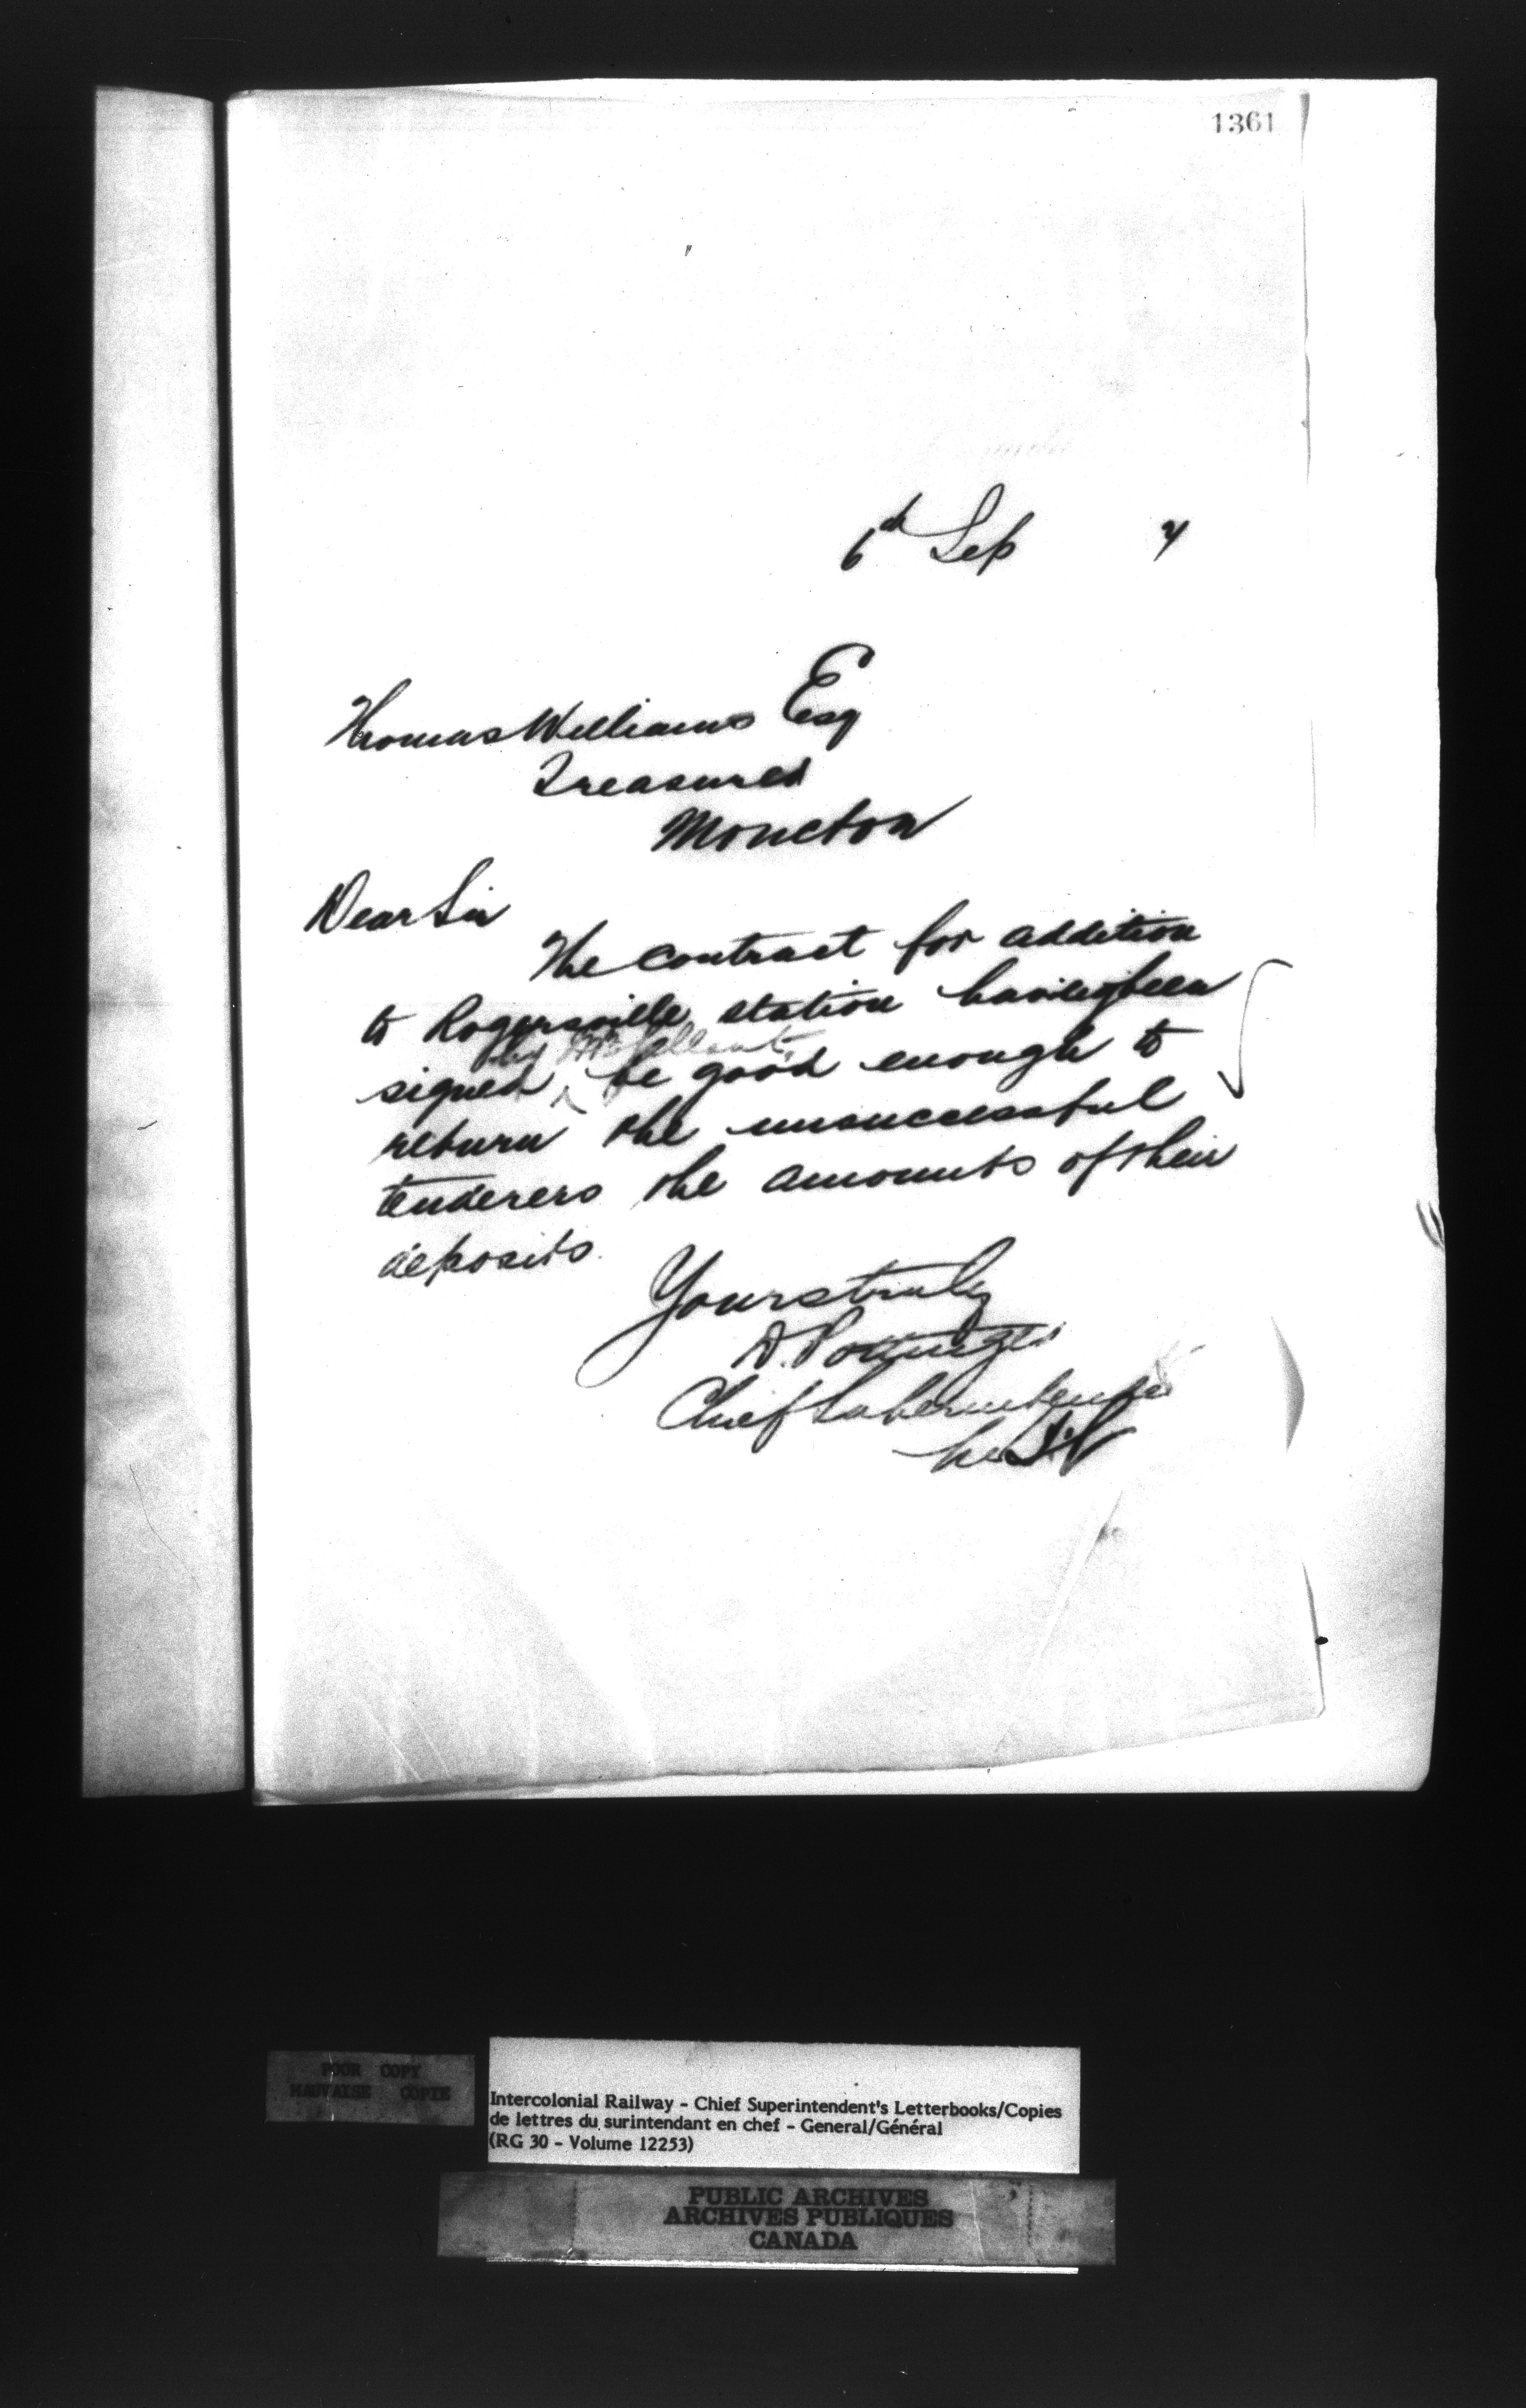 1361
6th Sep 4
Thomas Williams Esq
Treasurer
Moncton
Dear Sir
The contract for addition
to Rogersville station having been
by Mr
signed ^ be good enough to
return the unsuccessful
tenderers the amounts of their
deposits.
Yours truly
D. Pottinger
Chief Superintendent
POOR COPY
MAUVAISE COPIE
Intercolonial Railway - Chief Superintendent's Letterbooks/Copies
de lettres du surintendant en chef - General/Général
(RG 30 - Volume 12253)
PUBLIC ARCHIVES
ARCHIVES PUBLIQUES
CANADA